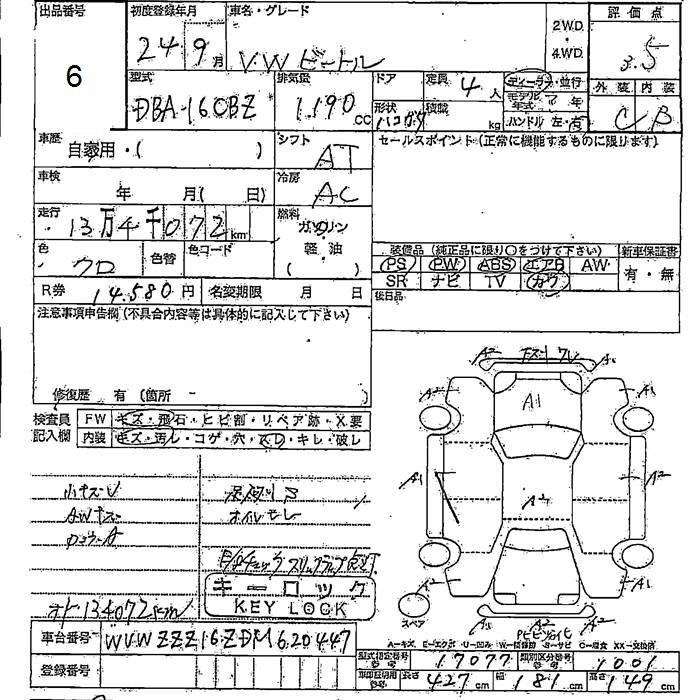 出品番号
6
初度登録年月
24 9月
車名・グレード
V.W ビートル
2WD
・
4WD
評価点
3.5
型式
DBA-16CBZ
排気量
1.190 CC
ドア
形状
定員
4人
積載
kg
ディーラー・並行
モデル年式 年
ハンドル 左・右
外装
内装
C
B
車歴
自家用・( )
シフト
AT
セールスポイント(正常に機能するものに限ります)
車検
年 月( 日)
冷房
AC
走行
13万4千072km
燃料
ガソリン
軽油
( )
色
クロ
色替
色コード
装備品(純正品に限り○をつけて下さい)
新車保証書
PS PW ABS エアB AW
SR ナビ TV カワ
有・無
R券
14.580円
名変期限 月 日
後日品
注意事項申告欄(不具合内容等は具体的に記入して下さい)
修復歴 有(箇所
検査員
記入欄
FW
キズ・飛石・ヒビ割・リペア跡・X要
内装
キズ・汚レ・コゲ・穴・スレ・キレ・破レ
小キズU
AWキズ
オイルモレ
キーロック
KEY LOCK
オド134072km
A2
A1
A1
A2
A1
A2
A1
A2
A2
スペア
A-キズ E-エクボ U-凹み W-補修跡 S-サビ C-腐食 XX-交換済
車台番号
WVWZZZ16ZDM620447
登録番号
型式指定番号
17077
類別区分番号
1001
長さ 427cm
幅 181cm
高さ 149cm